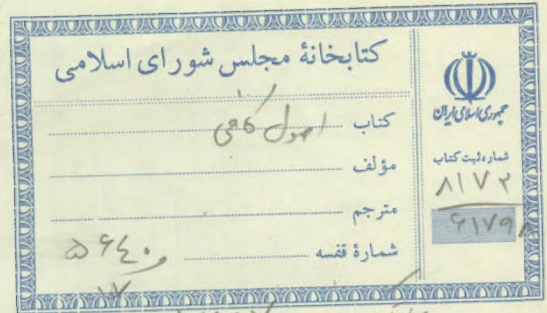 کتابخانهٔ مجلس شورای اسلامی
کتاب اصول کافی
مؤلف
مترجم
شمارهٔ قفسه ۵۶۴۰
۱۷
جمهوری اسلامی ایران
شماره ثبت کتاب
۸۱۷۲